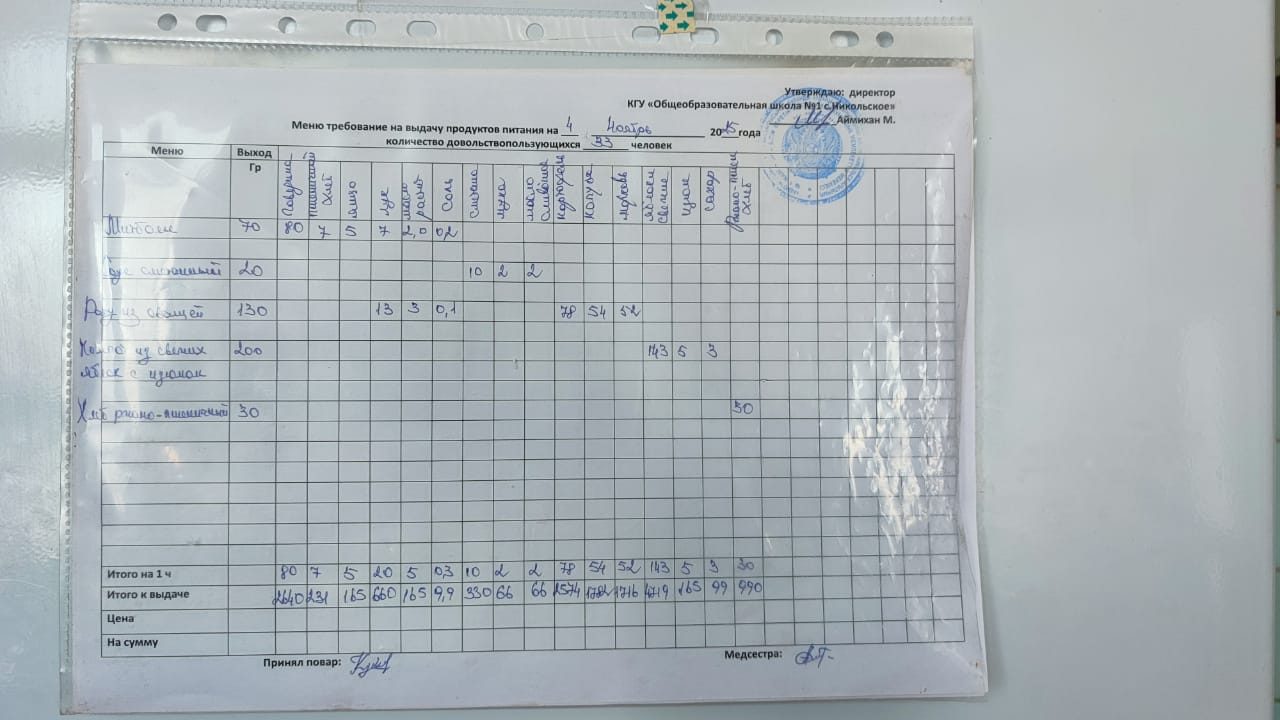 Утверждаю: директор
КГУ «Общеобразовательная школа №1 с.Никольское»
Аймихан М.
Меню требование на выдачу продуктов питания на 4 Ноябрь 2025 года
количество довольствопользующихся 33 человек
Меню Выход Гр Говядина пшеничный хлеб яйцо лук масло растит соль сметана мука масло сливочное картофель капуста морковь яблоки свежие изюм сахар Ржано-пшен хлеб
70 80 7 5 7 2,0 0,2
Соус сметанный 20 10 2 2
Рагу из овощей 130 13 3 0,1 78 54 52
Компот из свежих 200 143 5 3
яблок с изюмом
Хлеб ржано-пшеничный 30 30
Итого на 1 ч 80 7 5 20 5 0,3 10 2 2 78 54 52 143 5 3 30
Итого к выдаче 2640 231 165 660 165 9,9 330 66 66 2574 1782 1716 4719 165 99 990
Цена
На сумму
Принял повар: Медсестра: